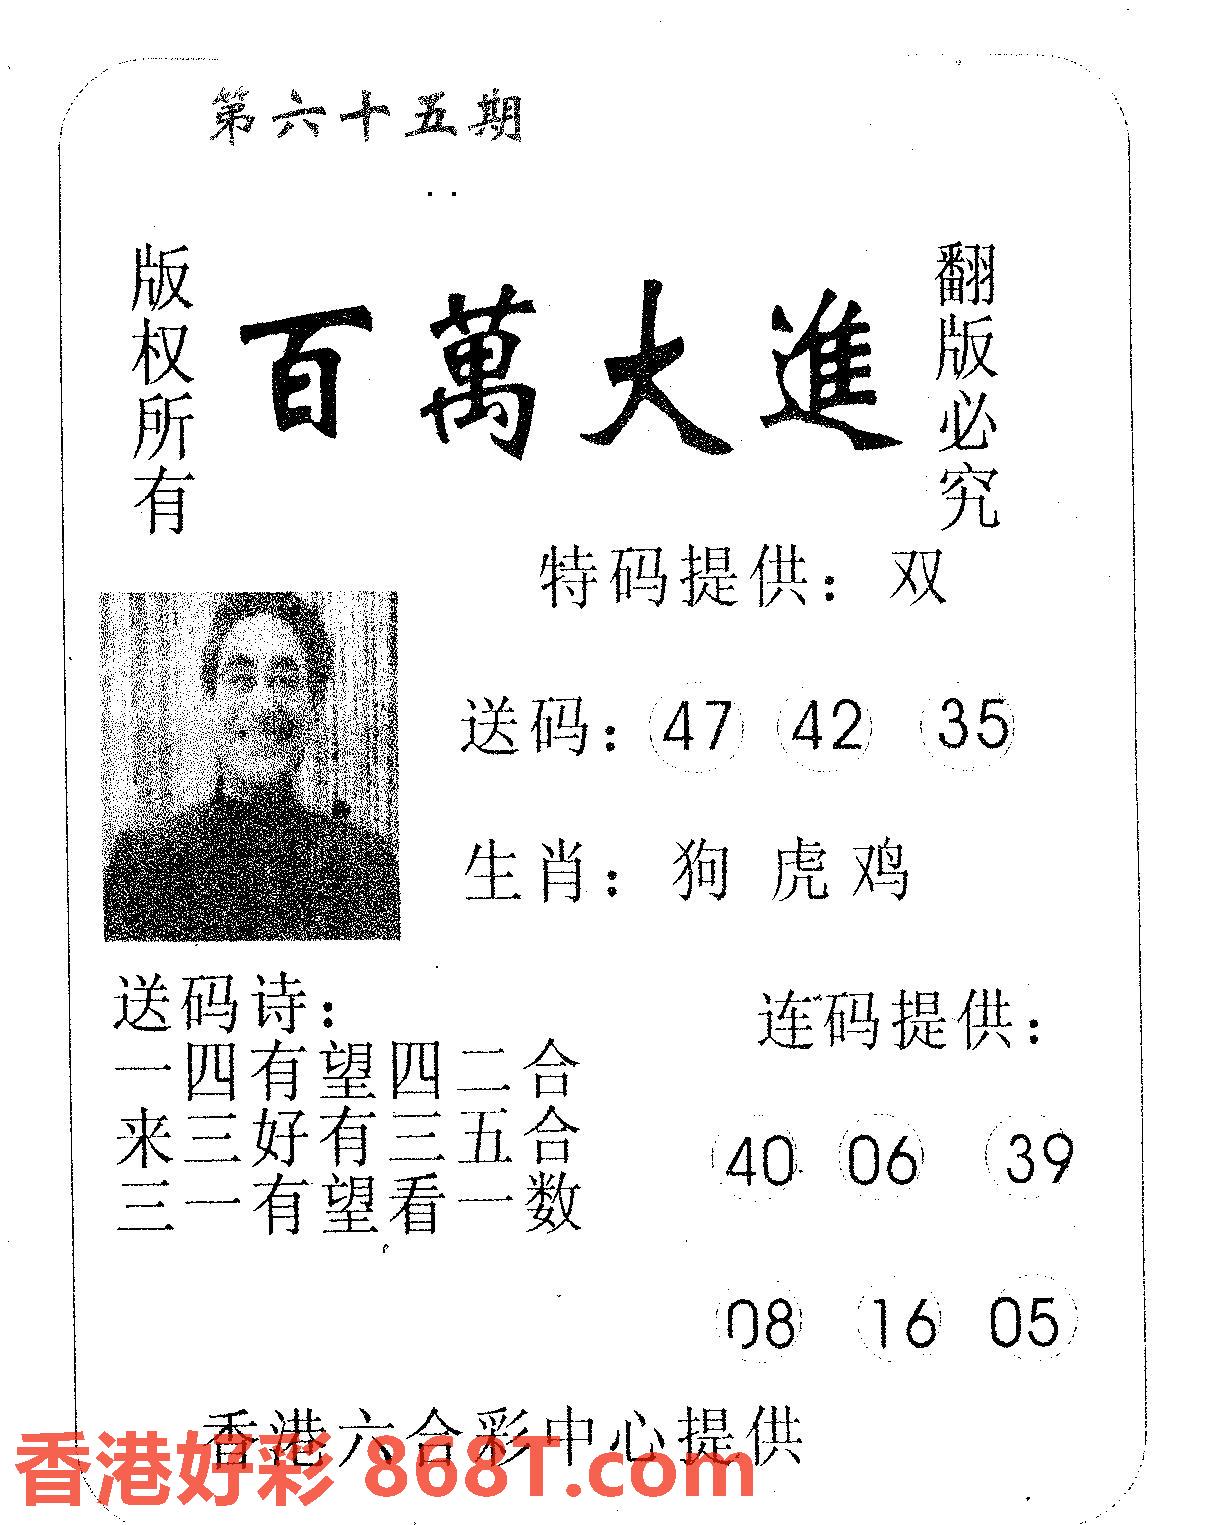 第六十五期
版权所有
百萬大進
翻版必究
特码提供：双
送码：47 42 35
生肖：狗 虎 鸡
送码诗：
一四有望四二合
来三好有三五合
三一有望看一数
连码提供：
40 06 39
08 16 05
香港六合彩中心提供
香港好彩 868T.com